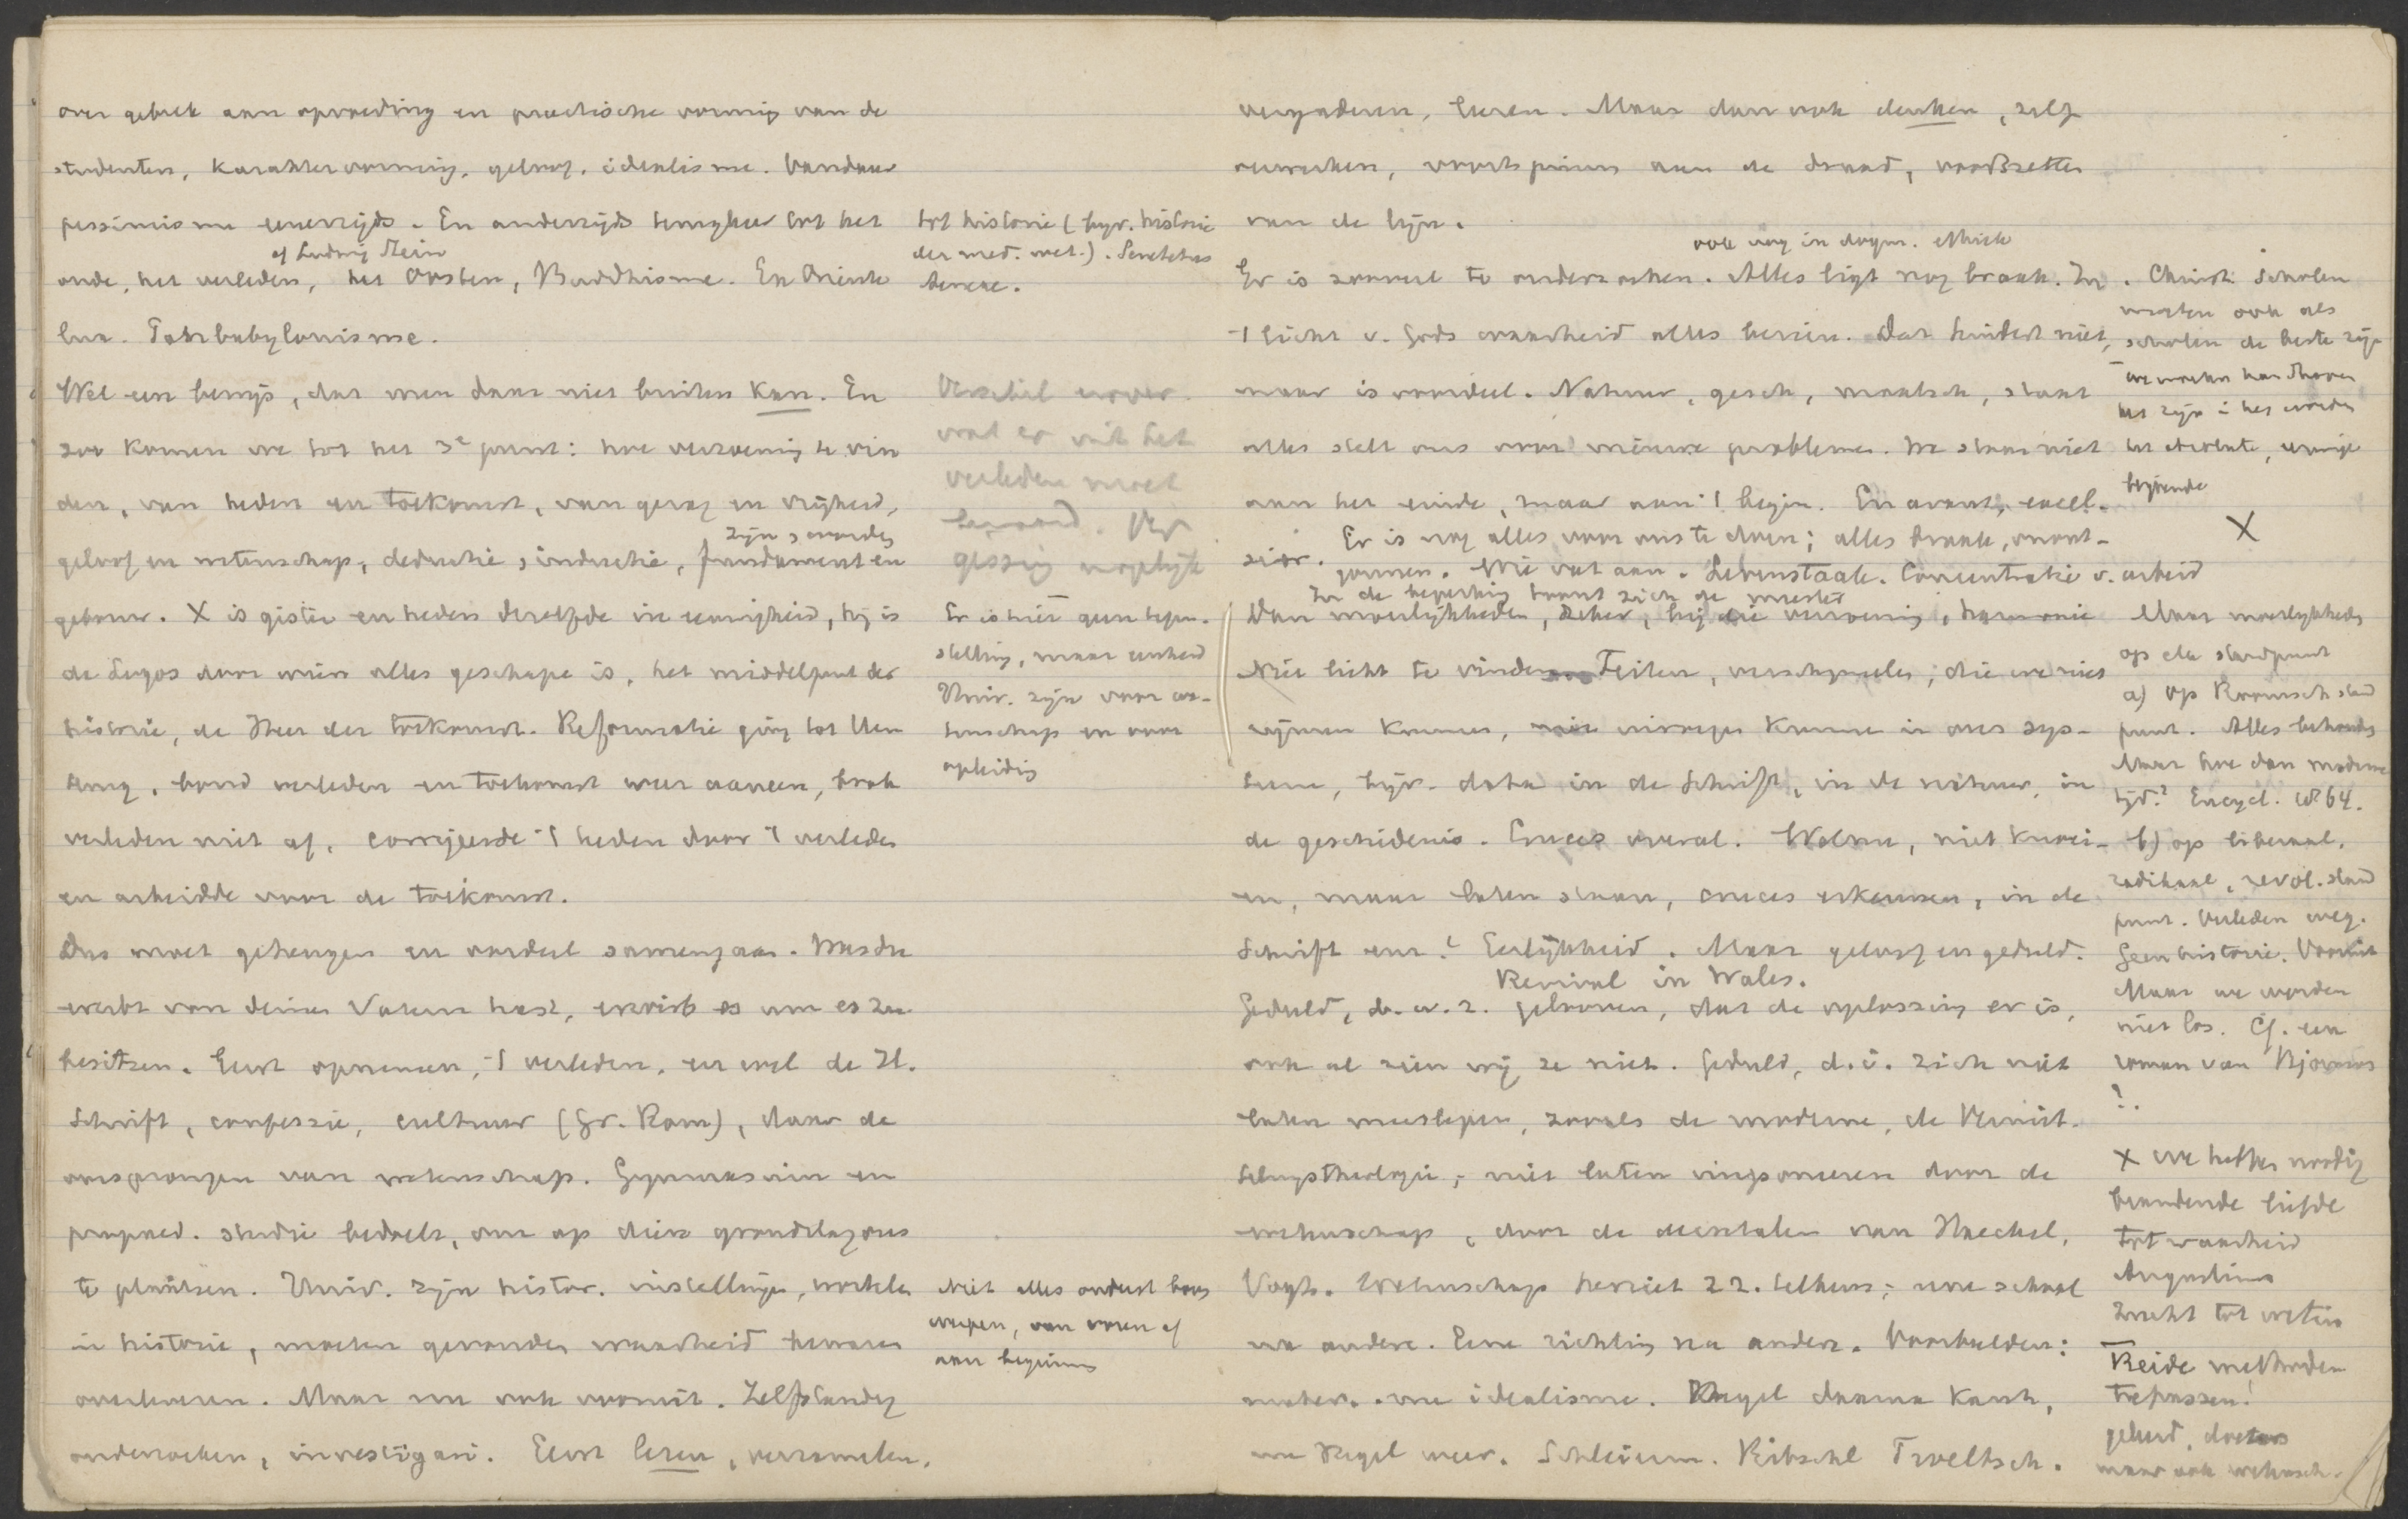 over gebrek aan opvoeding en practische vorming van de
studenten, karaktervorming, geloof, idealisme. Vandaar
pessimisme eenerzijds. En anderzijds terugkeer tot het
cf Ludwig Stein
oude, het verleden, het Oosten, Buddhisme. Ex Oriente
lux. Panbabylonisme.
Wel een bewijs, dat men daar niet buiten kan. En
zoo komen we tot het 3e punt: hoe verzoening te vin
den, van heden en toekomst, van gezag en vrijheid,
zijn worden
geloof en wetenschap, deductie, inductie, fundament en
gebouw. X is gister en heden dezelfde in eeuwigheid, hij is
de Logos door wien alles geschape is, het middelpunt der
historie, de Heer der toekomst. Reformatie ging tot
terug, bond verleden en toekomst weer aaneen, brak
verleden niet af, corrigeerde 't heden door 't verleden
en arbeidde voor de toekomst.
Dus moet geheugen en oordeel samengaan. Was du
ererbt von deinen Vätern hast, erwirb es um es zu
besitzen. Eerst opnemen, 't verleden, en wel de H.
Schrift, confessie, cultuur (Gr. Rom), daar de
oorsprongen van wetenschap. Gymnasium en
propaed. studie bedoelt, om op dien grondslag ons
te plaatsen. Univ. zijn histor. instellingen, wortelen
in historie, moeten gevonden waarheid bewaren
overleveren. Maar nu ook vooruit. Zelfstandig
onderzoeken, investigari. Eerst leren, verzamelen,
tot historie (bijv. historie
der med. wet.). Senectus
Verschil over
wat er uit het
verleden moet
bewaard. Ver
gissing mogelijk
Er is hier geen tegen-
stelling, maar eenheid
Univ. zijn voor we-
tenschap en voor
opleiding
Niet alles onderst boven
werpen, van voren af
aan beginnen
vergaderen, leeren. Maar dan ook denken, zelf
verwerken, voortspinnen aan de draad, voortzetten
van de lijn.
ook nog in dogm. ethiek
Er is zooveel te onderzoeken. Alles ligt nog braak. In
't licht v. Gods waarheid alles bezien. Dat hindert niet,
maar is voordeel. Natuur, gesch, maatsch, staat
alles stelt ons voor nieuwe problemen. We staan niet
aan het einde, maar aan 't begin. En avant, excel-
sior. Er is nog alles voor ons te doen; alles braak, onont-
gonnen. Wie vat aan. Lebenstaak. Concentratie v. arbeid
In de beperking toont zich de meester
Dan moeilijkheden, zeker, bij die verzoening, harmonie
Niet licht te vinden. Feiten, verschijnselen, die we niet
rijmen kunnen, niet invoegen kunnen in ons sys-
teem, bijv. data in de Schrift, in de natuur, in
de geschiedenis. Cruces overal. Welnu, niet knoei-
en, maar laten staan, cruces erkennen, in de
Schrift enz. Eerlijkheid. Maar geloof en geduld.
Revival in Wales.
Geduld, d.w.z. gelooven, dat de oplossing er is,
ook al zien wij ze niet. Geduld, d.i. zich niet
laten meeslepen, zooals de moderne, de Vermitt-
lungstheologie, niet laten imponeeren door de
wetenschap, door de van Haeckel,
Vogt. Wetenschap herziet zz. telkens; eene school
na andere. Eene richting na andere. Voorbeelden:
mater. en idealisme. Hegel daarna Kant,
nu Hegel weer. Schleierm. Ritschl Troeltsch.
. Christ. scholen
moeten ook als
scholen de beste zijn
we moeten handhaven
het zijn i het worden
het absolute, eeuwige
blijvende
X
Maar moeilijkheden
op elk standpunt
a) op Roomsch stand
punt. Alles behouden
Maar hoe dan moderne
tijd? Encycl. 1864.
b) op liberaal,
radikaal, revol. stand
punt. Verleden weg.
Geen historie. Vooruit
Maar we worden
niet los. Cf. een
roman van
?.
X we hebben noodig
brandende liefde
tot waarheid
Augustinus
zucht tot weten
Beide methoden
toepassen!
geleerd, doctors
maar ook wetensch.